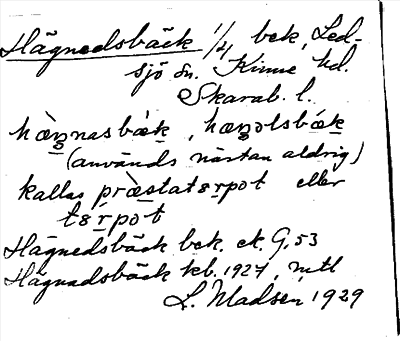 Hägnedsbäck 1/4 bek, Led-
sjö sn. Kinne hd.
Skarab. l.
hæ̀ŋnasbæ̀k, hæŋolsbæk
(används nästan aldrig)
kallas præ̀statɜrpot eller
tɜrpot
Hägnedsbäck bek. ek. G, 53
Hägnadsbäck kb. 1927, mtl
L. Madsén 1929